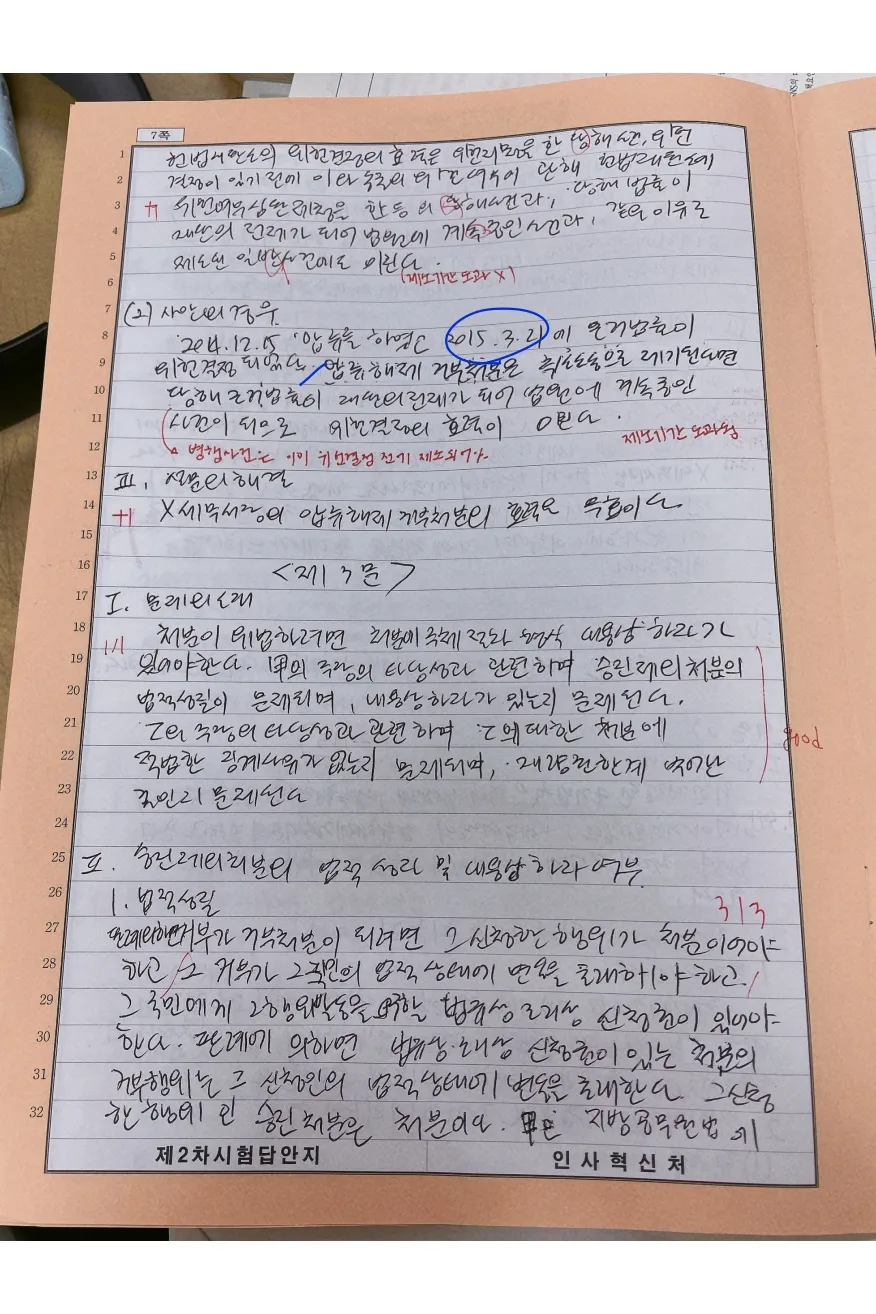 7쪽
1 헌법재판소의 위헌결정의 효력은 위헌제청을 한 당해사건, 위헌
2 결정이 있기 전에 이와 동종의 위헌여부에 관해 헌법재판소에
3 +1 위헌여부심판제청을 한 동종의 당해사건과, 당해 법률이
4 재판의 전제가 되어 법원에 계속중인 사건과, 같은 이유로
5 제소된 일반사건에도 미친다.
6 (제소기간 도과 X)
7 (2) 사안의 경우
8 2014.12.05 압류를 하였고 2015.3.21에 근거법률이
9 위헌결정 되었다. 압류해제 거부처분은 취소소송으로 제기된다면
10 당해 근거법률이 재판의 전제가 되어 법원에 계속중인
11 사건이 되므로 위헌결정의 효력이 미친다.
제소기간 도과왕
12 병행사건은 이미 위헌결정 전에 제소되어야
13 Ⅲ. 설문의 해결
14 +1 X세무서장의 압류해제거부처분의 효력은 무효이다
15
16 <제3문>
17 Ⅰ. 문제의 소재
18 처분이 위법하려면 처분에 주체 절차 형식 내용상 하자가
19 1/1 있어야한다. 甲의 주장의 타당성과 관련하여 승진제외처분의
20 법적성질이 문제되며, 내용상하자가 있는지 문제된다.
21 乙의 주장의 타당성과 관련하며 乙에 대한 처분에
good
22 적법한 징계사유가 있는지 문제되며, 재량권한계 벗어난
23 것인지 문제된다
24
25 Ⅱ. 승진제외처분의 법적 성질 및 내용상 하자 여부
26 1. 법적성질
3/3
27 판례의하면 거부가 거부처분이 되려면 그 신청한 행위가 처분이어야
28 하고 그 거부가 그 국민의 법적 상태에 변동을 초래하여야 하고,
29 그 국민에게 그 행위발동을 요구할 법규상 조리상 신청권이 있어야
30 한다. 판례에 의하면 법규상·조리상 신청권이 있는 처분의
31 거부행위는 그 신청인의 법적상태에 변동을 초래한다. 그 신청
32 한 행위인 승진처분은 처분이다. 甲은 지방공무원법에
제2차시험답안지
인사혁신처